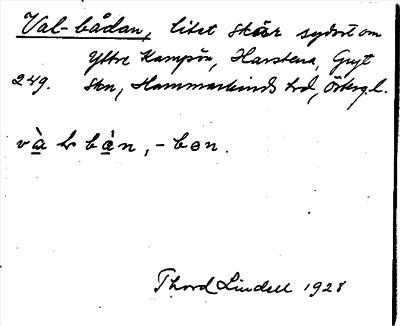 Val-bådan, litet skär sydost om
Yttre Kampön, Harstena, Gryt
249. skn, Hammarkinds hd, Österg.l.
và lr bàn, -bɘn.
Thord Lindell 1928